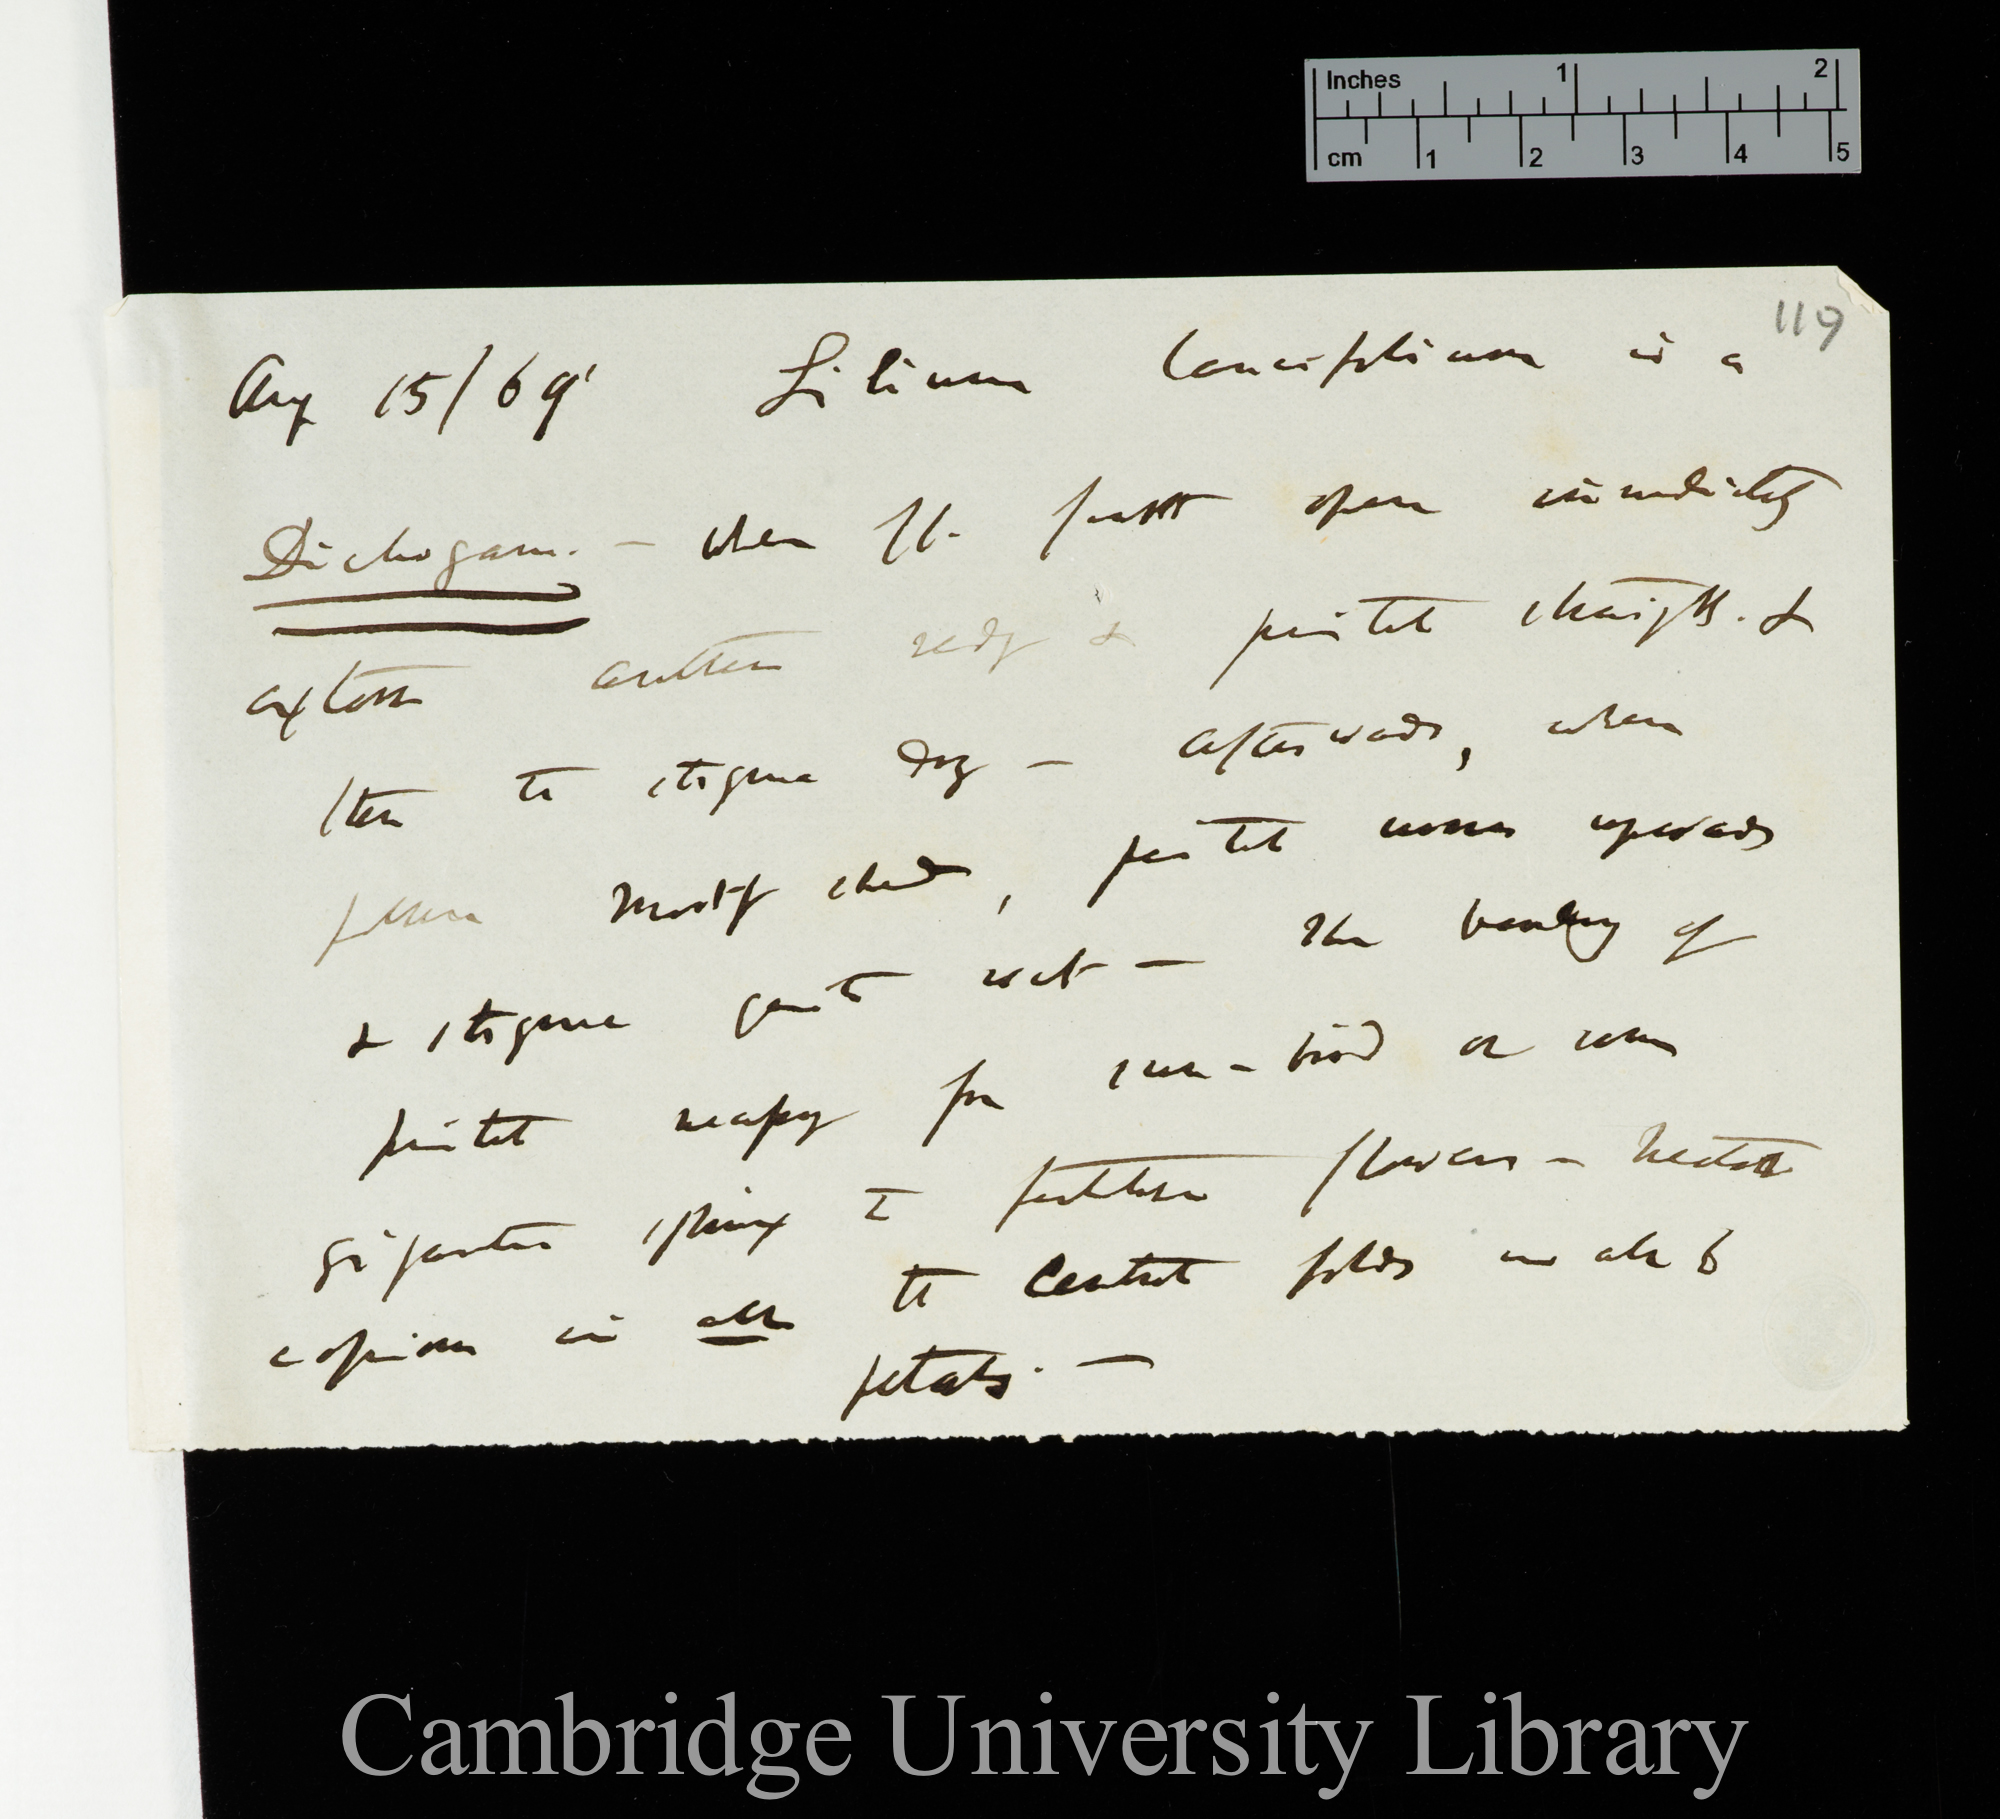 Inches 1 2
cm 1 2 3 4 5
119
Aug 15/69 Lilium lancifolium is a
Dichogam. — when fl. first open immediately
explode anthers ready & pistil straight. &
then the stigma dry — afterwards, when
pollen mostly shed, pistil moves upwards
& stigma quite wet — The bending of
pistil necessary for sun-bird or some
gigantic sphinx to fertilise flowers — Nectar
copious in all the central folds in all 6
petals. —
Cambridge University Library